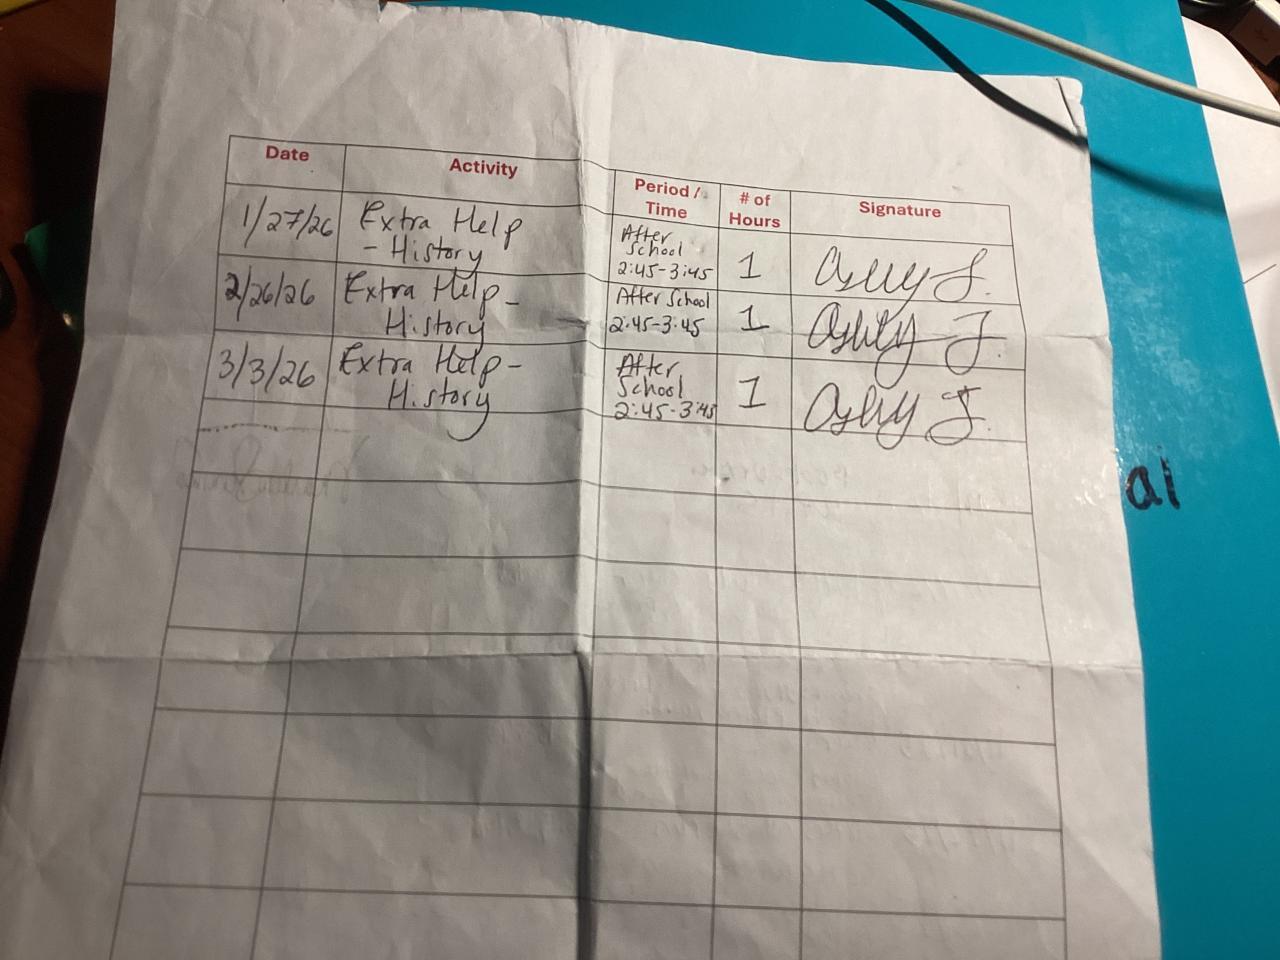 Date Activity Period / Time # of Hours Signature
1/27/26 Extra Help - History After School 2:45-3:45 1
2/26/26 Extra Help - History After School 2:45-3:45 1
3/3/26 Extra Help - History After School 2:45-3:45 1
al